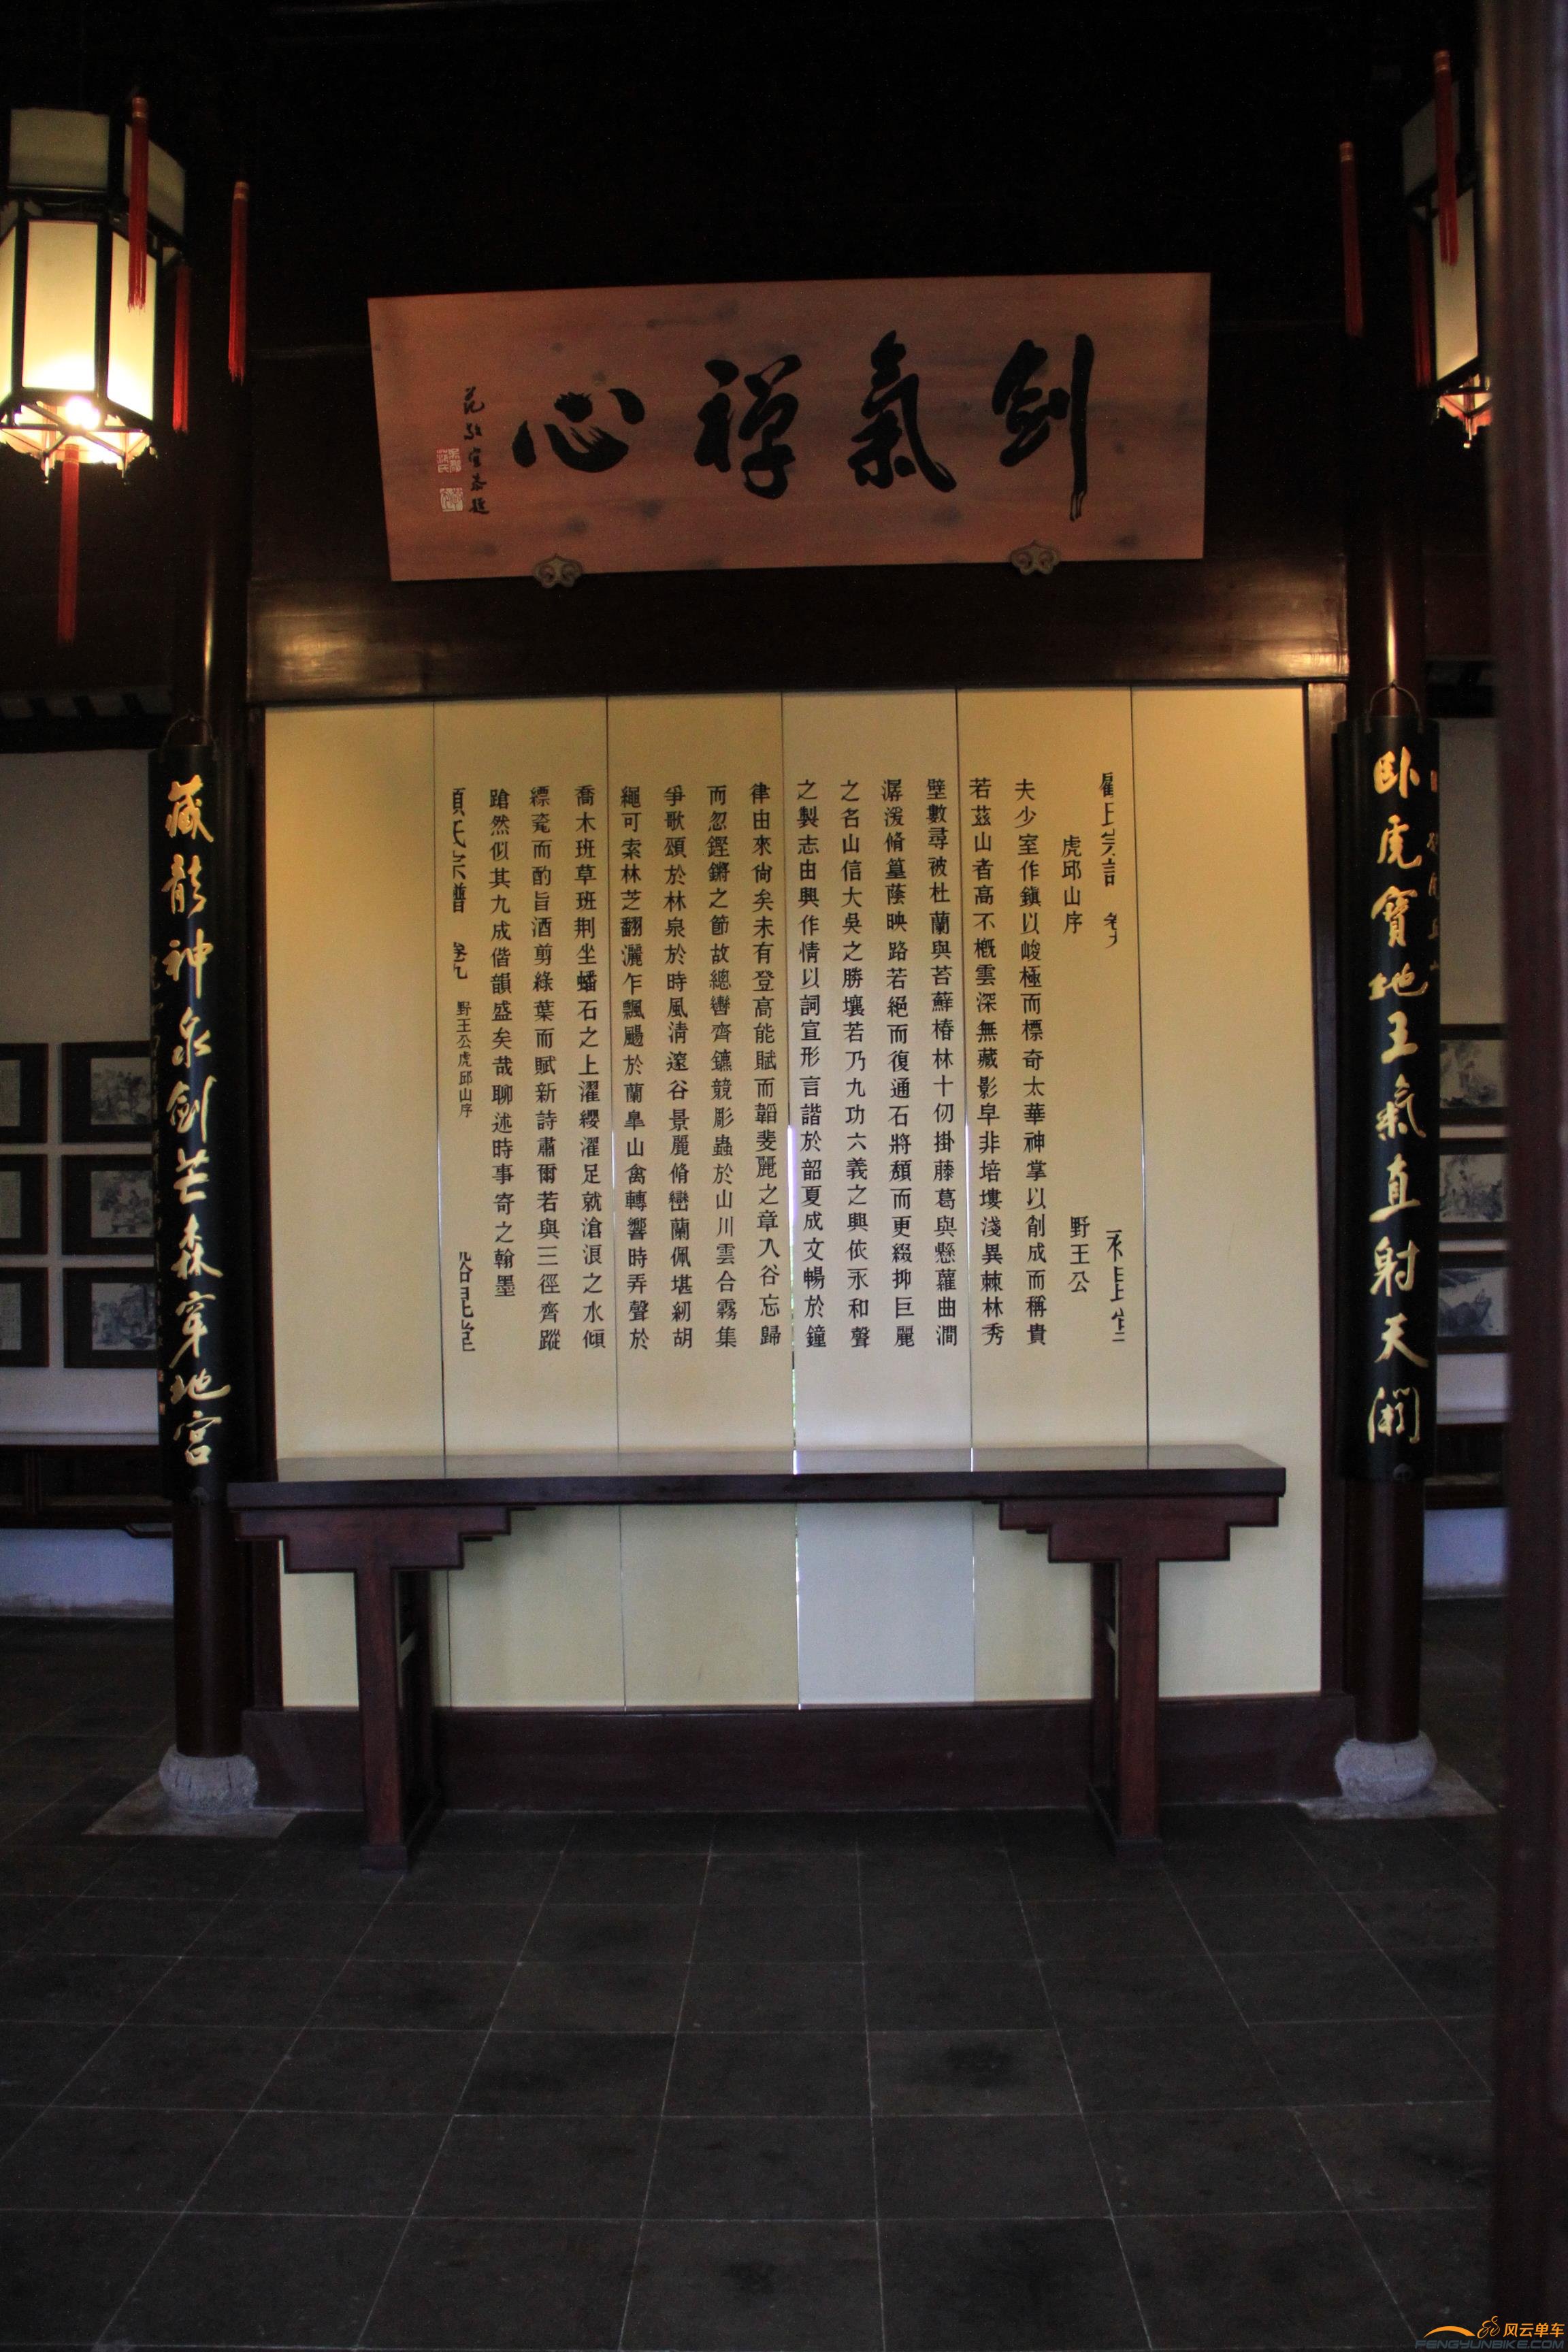 劍氣禪心
范敬宜恭題
臥虎寶地王氣直射天闕
藏龍神泉劍芒森穿地宮
虎邱山序
野王公
夫少室作鎮以峻極而標奇太華神掌以削成而稱貴
若茲山者高不槪雲深無藏影卑非培塿淺異棘林秀
壁數尋被杜蘭與苔蘚椿林十仞掛藤葛與懸蘿曲澗
潺湲脩篁蔭映路若絕而復通石將頹而更綴抑巨麗
之名山信大吳之勝壤若乃九功六義之興依永和聲
之製志由興作情以詞宣形言諧於韶夏成文暢於鐘
律由來尙矣未有登高能賦而韜斐麗之章入谷忘歸
而忽鏗鏘之節故總轡齊鑣競彫蟲於山川雲合霧集
爭歌頌於林泉於時風淸邃谷景麗脩巒蘭佩堪紉胡
繩可索林芝翻灑乍飄颺於蘭臯山禽轉響時弄聲於
喬木班草班荆坐蟠石之上濯纓濯足就滄浪之水傾
縹瓷而酌旨酒剪綠葉而賦新詩肅爾若與三徑齊蹤
蹌然似其九成偕韻盛矣哉聊述時事寄之翰墨
顧氏宗譜 卷九 野王公虎邱山序
风云单车
FENGYUNBIKE.COM